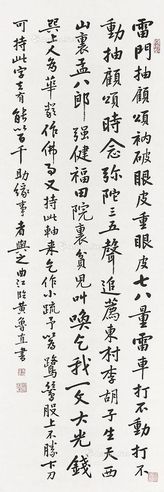 雷門抽顧頌衲破眼皮重眼皮七八量雷車打不動打不
動抽顧頌時念弥陀三五聲追薦東村李胡子生天西
山裏孟八郎強健福田院裏貧兒叫喚乞我一文大光錢
與上人為華嚴作佛事又持此軸来乞作小疏予若鷺鷥股上不勝下刃
可持此字去有能以百千助緣事者與之曲江臨黄魯直書